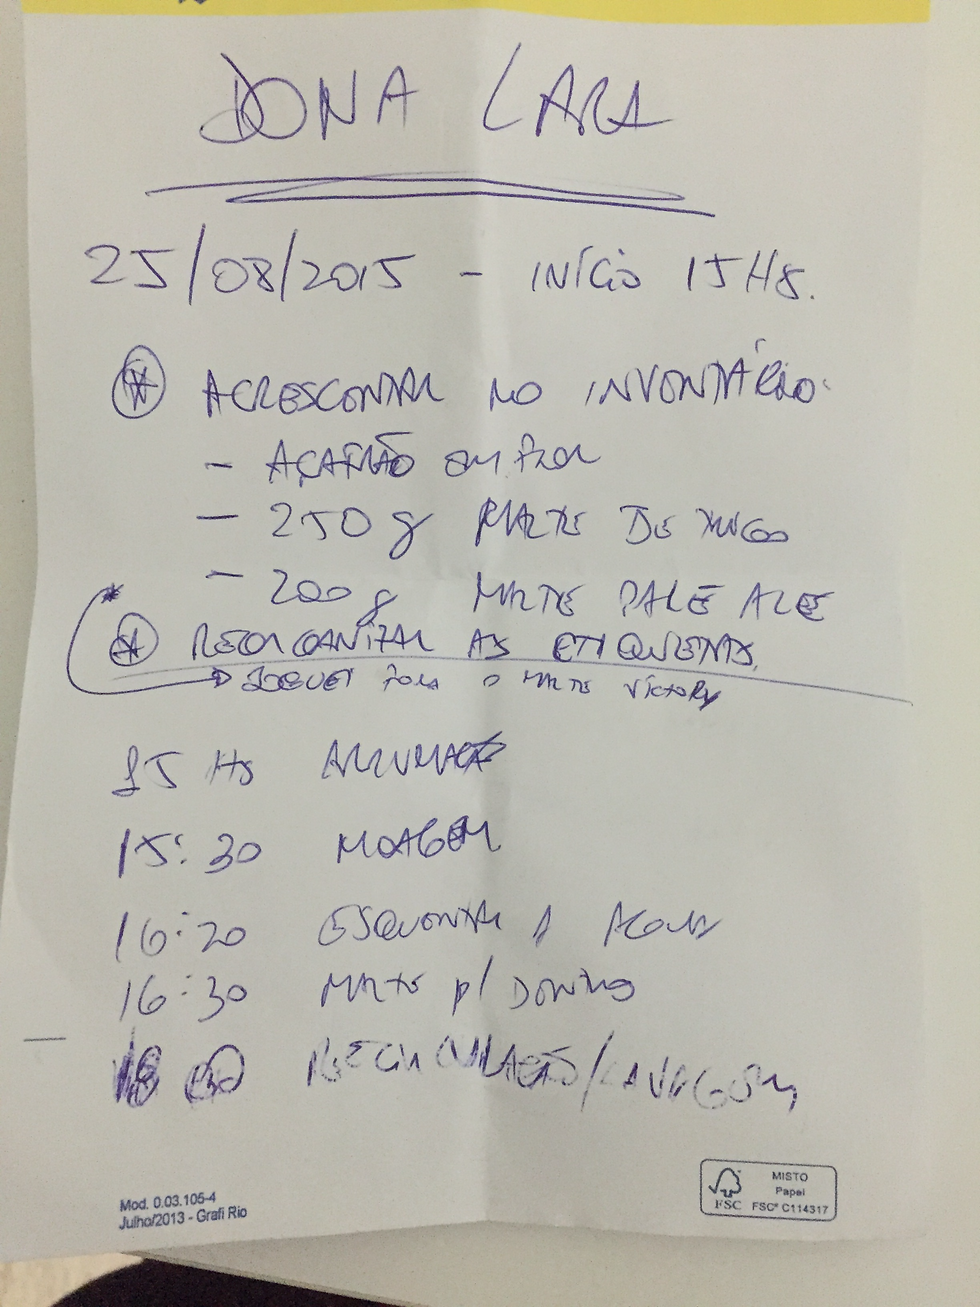 DONA LARA
25/08/2015 - INÍCIO 15 HS.
* ACRESCENTAR NO INVENTÁRIO:
- AÇAFRÃO EM FLOR
- 250 g MALTE DE TRIGO
- 200 g MALTE PALE ALE
* REORGANIZAR AS ETIQUETAS.
* → JOGUEI FORA O MALTE VICTORY
15 HS ARRUMAÇÃO
15:30 MOAGEM
16:20 ESQUENTAR A ÁGUA
16:30 MALTE P/ DENTRO
18 00 RECIRCULAÇÃO/LAVAGEM
Mod. 0.03.105-4
Julho/2013 - Grafi Rio
MISTO
Papel
FSC FSC® C114317